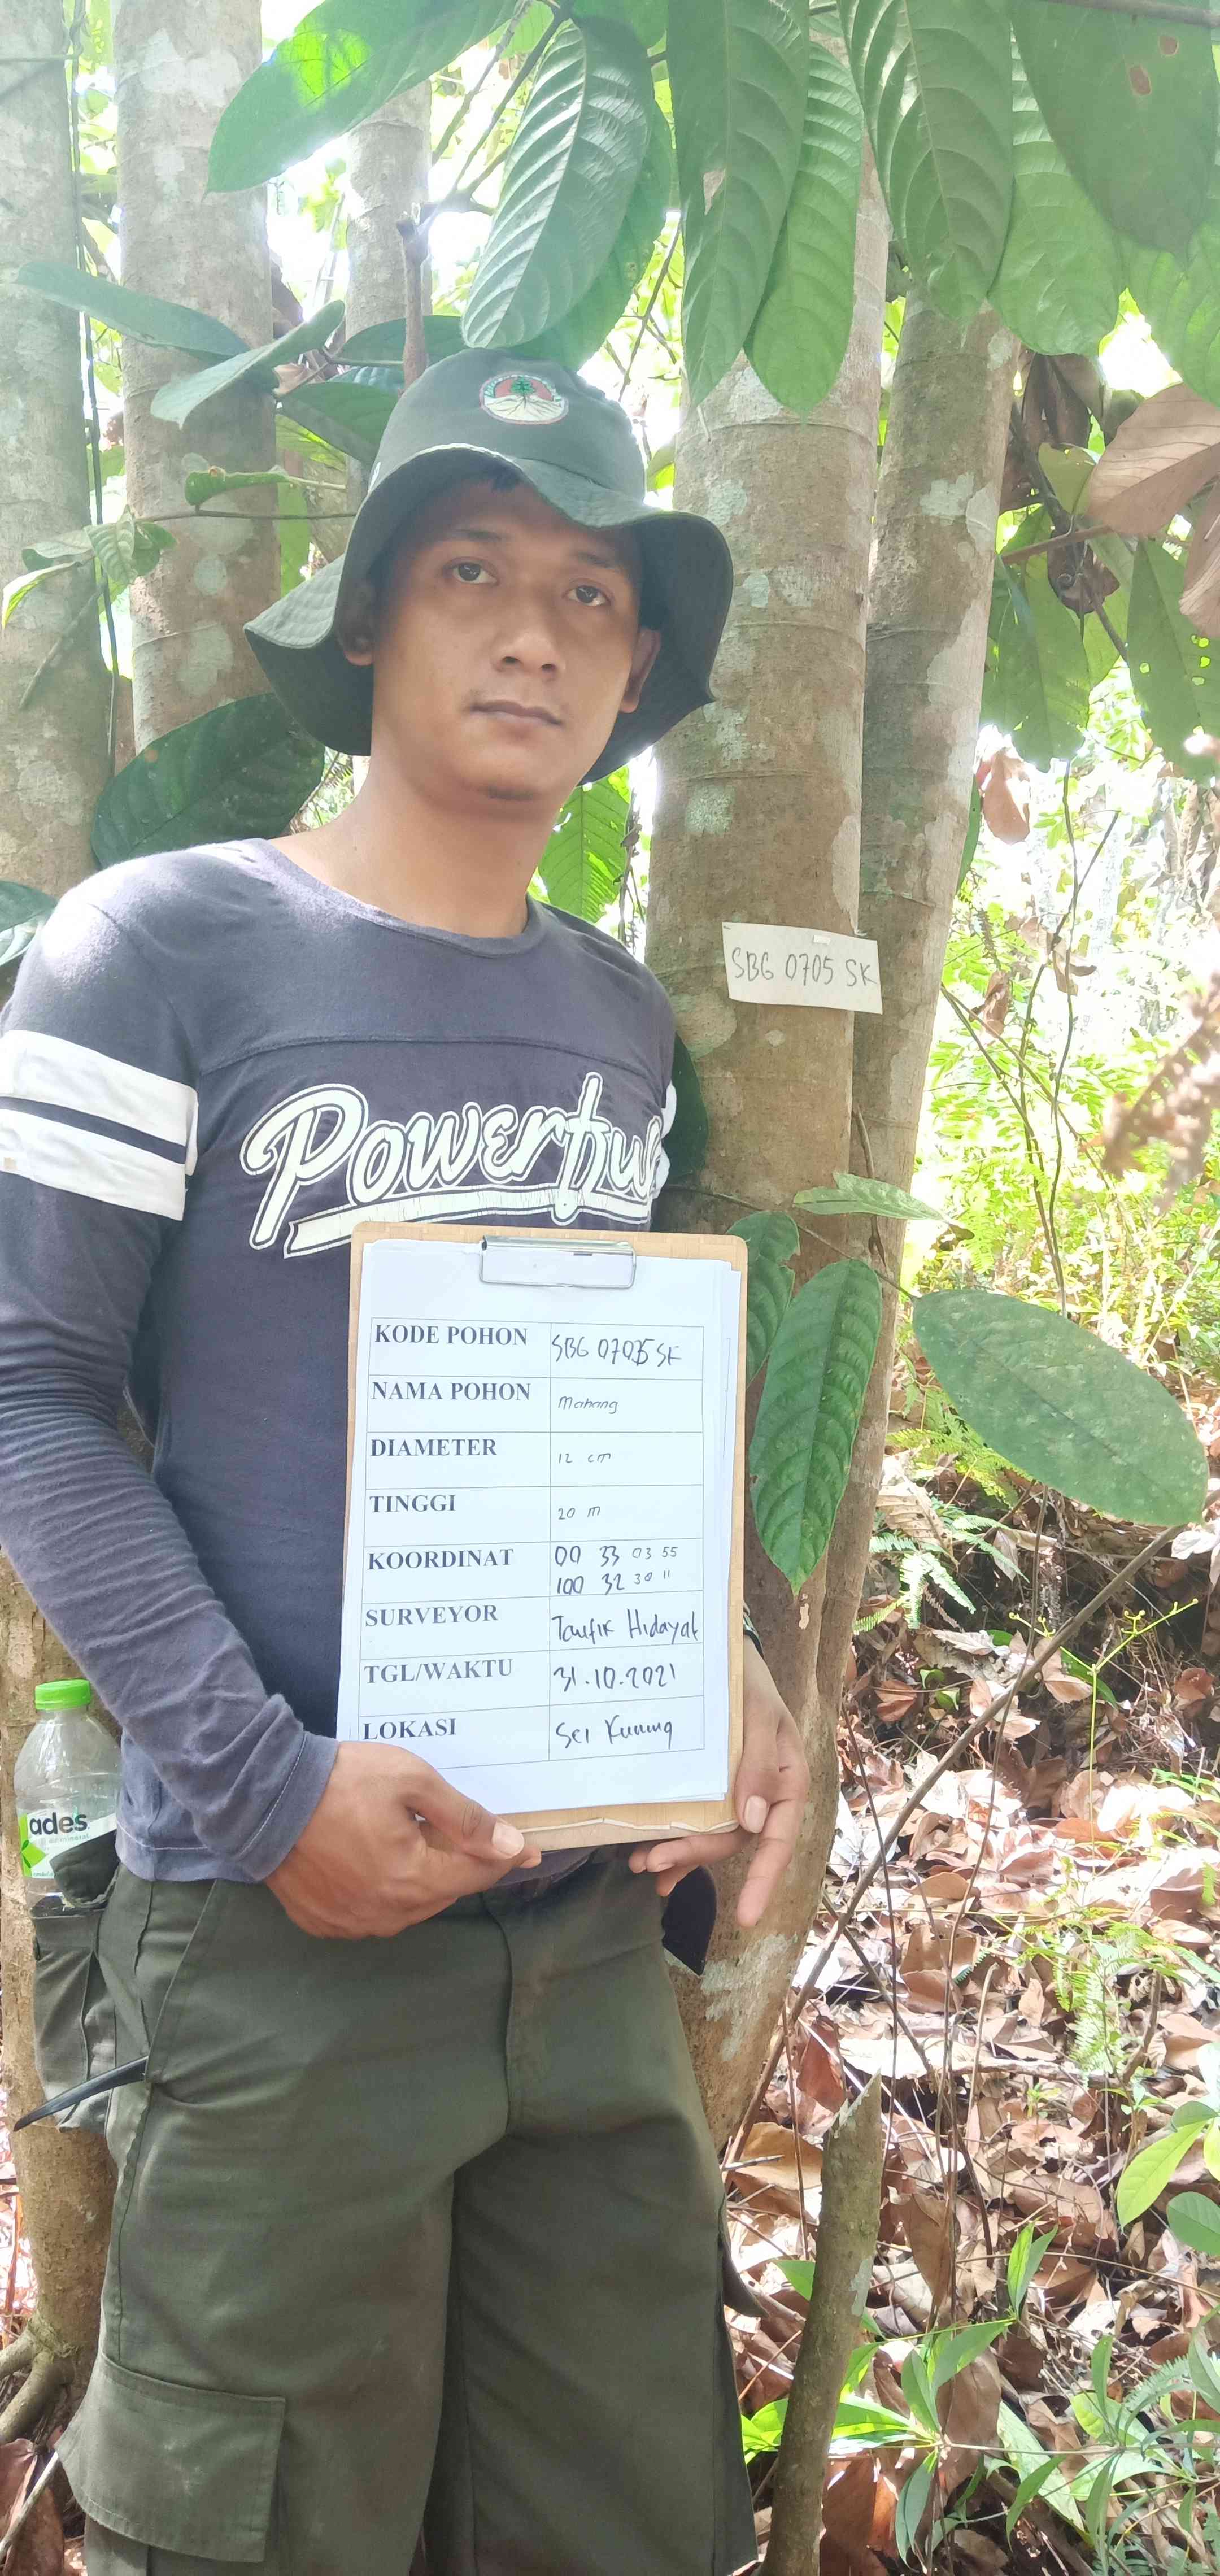 SBG 0705 SK
Powerpuff
KODE POHON SBG 0705 SK
NAMA POHON Mahang
DIAMETER 12 cm
TINGGI 20 m
KOORDINAT 00 33 03 55
100 32 30 11
SURVEYOR Taufik Hidayat
TGL/WAKTU 31.10.2021
LOKASI Sei Kuning
ades